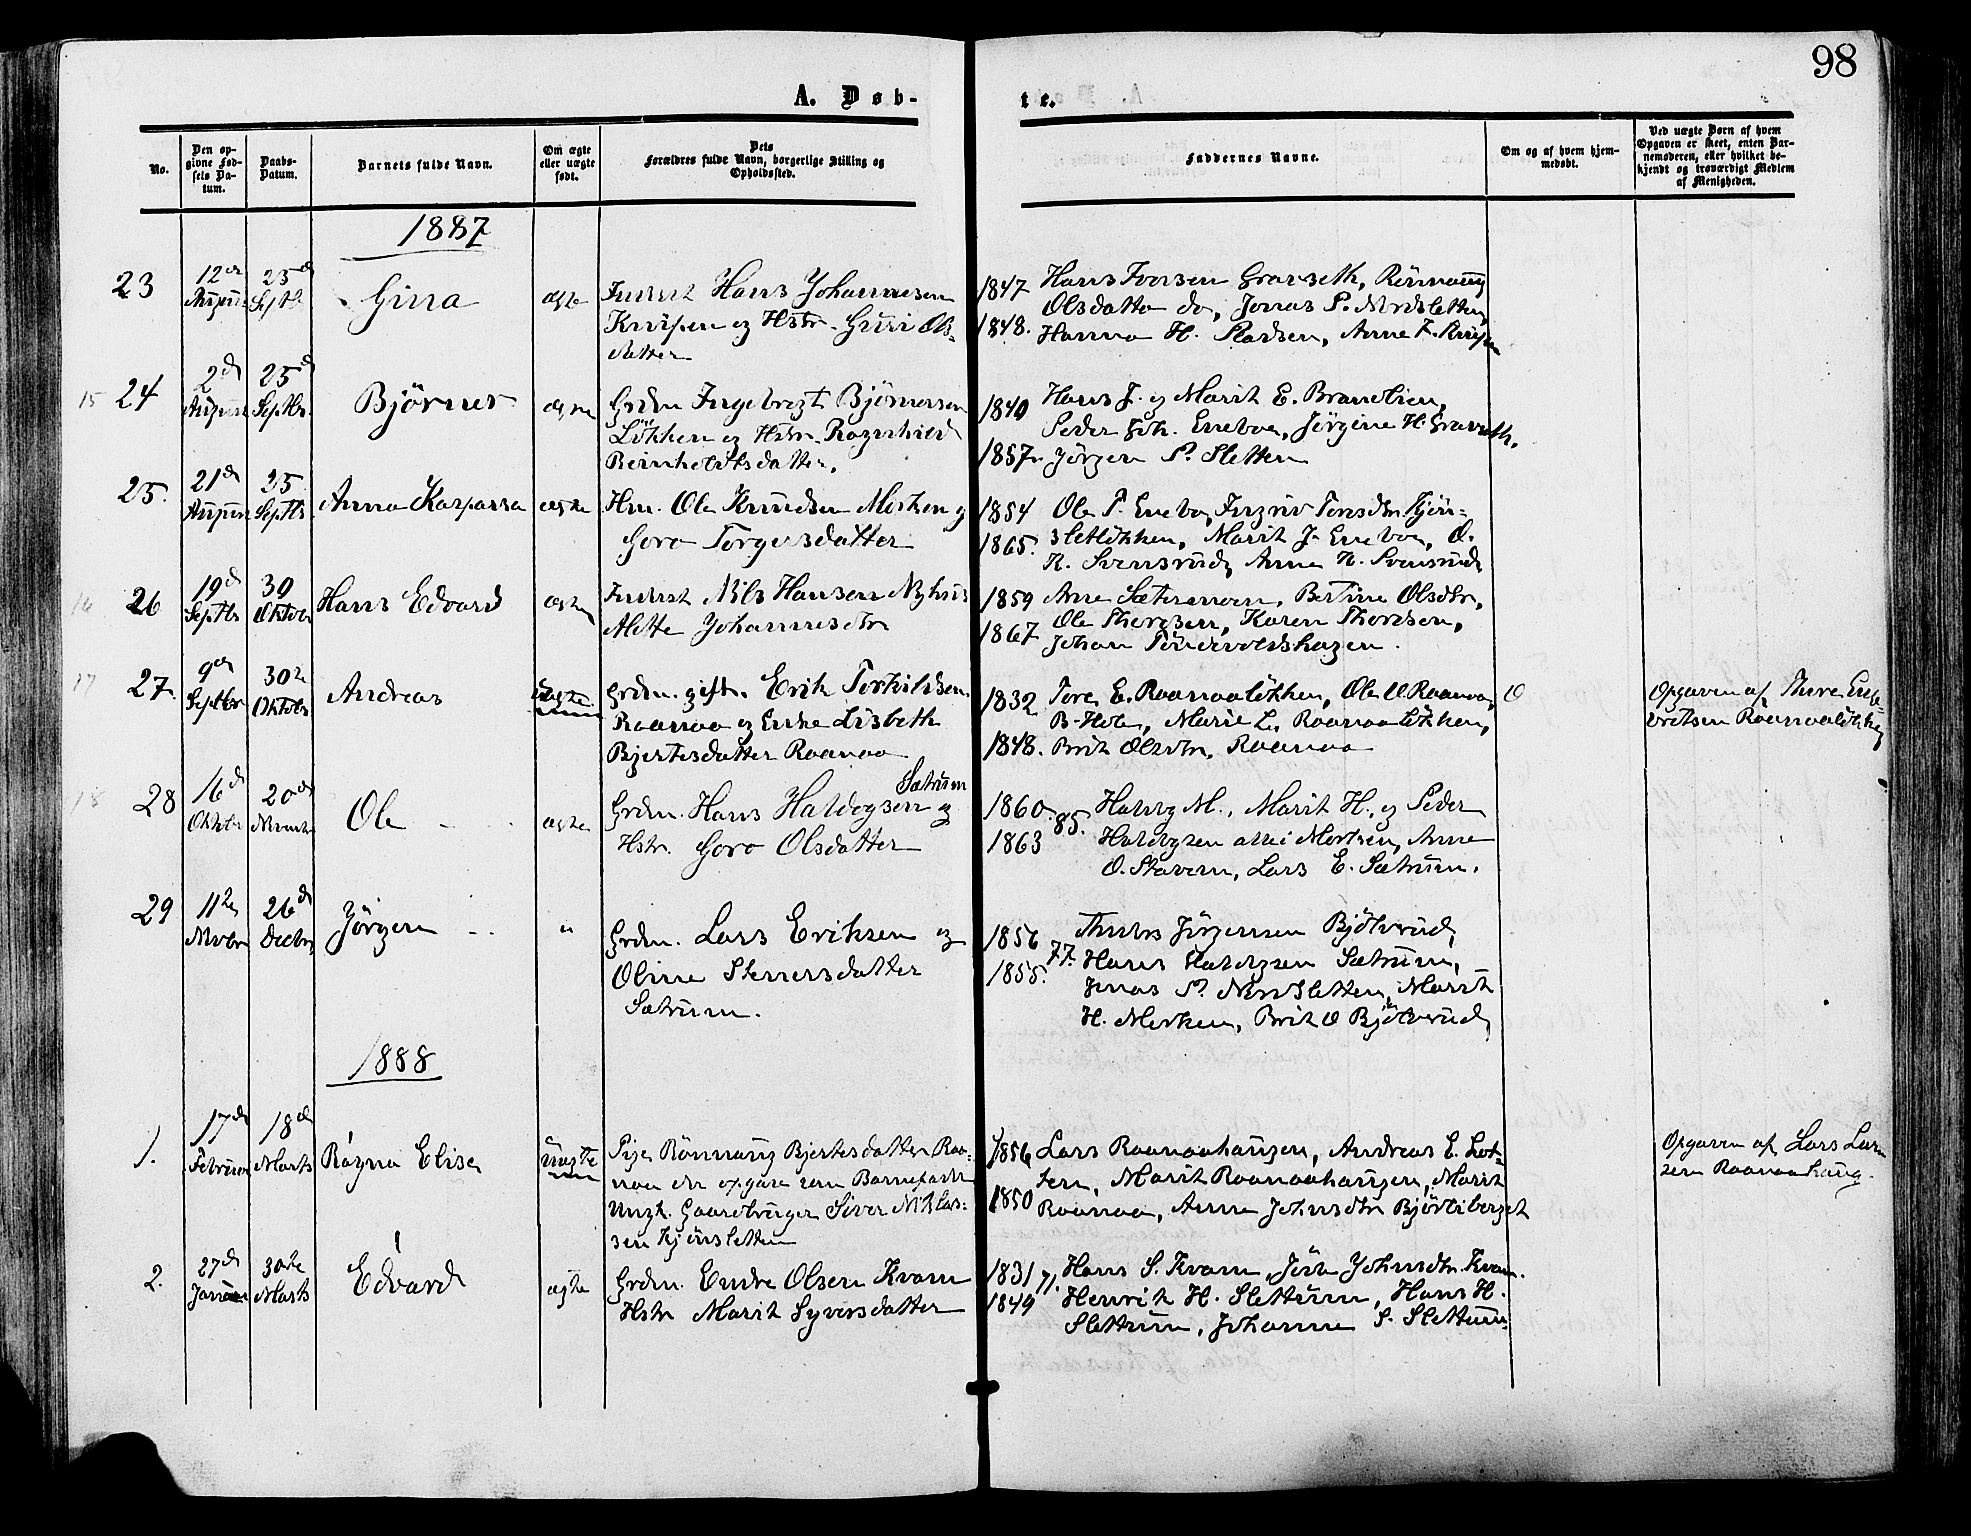 98
A. Døb-
te.
No.
Den op-
givne Fød-
sels Da-
tum.
Daabs-
Datum.
Barnets fulde Navn.
Om ægte
eller uægte
født.
Dets
Forældres fulde Navn, borgerlige Stilling og
Opholdssted.
Faddernes Navne.
Om og af hvem hjem-
medøbt.
Ved uægte Børn af hvem
Opgaven er skeet, enten Bar-
nemoderen, eller hvilket be-
kjendt og troværdigt Medlem
af Menigheden.
1887
23
12te
August
25d
Septbr
Gina
ægte
Inderst Hans Johannesen
og Hstr. Guri Ols-
datter
1847
1848.
Hans Iversen Gravseth, Rönnaug
Olsdatter do, Jonas P. Nordsletten,
Hanna H. Anne
15
24
2d
August
25d
Septbr.
Björner
ægte
Grdm. Ingebregt Björnersen
Lökken og Hstr. Ragnhild
Bernholdtsdatter.
1840
1857.
Hans J. og Marit E. Brandlien,
Peder Joh. Eneboe, Jörgine H. Gravseth.
Jörgen P. Sletten
25.
21d
August
25
Septbr
Anna Kasparra
ægte
Hm. Ole Knudsen Morken og
Goro Torgersdatter
1854
1865.
Ole T. Enebo, Ingrid Toresdtr Kjön-
sletlökken, Marit J. Eneboe, O.
K. Svensrud, Anne K. Svensrud
16
26
19d
Septbr
30
Oktober
Hans Edvard
ægte
Inderst Nils Hansen Nyhus
Alette Johannesdtr
1859
1867
Anne Sætermoen, Bertine Olsdtr,
Ole Thoresen, Karen Thoresen,
Johan Töndevoldshagen.
17
27.
9de
Septbr
30te
Oktober
Andreas
uægte
Grdm. gift. Erik Torkildsen
Raanaa og Enke Lisbeth
Bjertesdatter Raanaa
1832
1848.
Tore E. Raanaalökken, Ole O Raanaa,
B. Hole, Marie L. Raanaalökken,
Brit Olsdtr. Raanaa
O
Opgaven af Thore Enge-
bretsen Raanaalökken
18
28
16d
Oktbr
20de
Novembr
Ole
ægte
Grdm. Hans Haldogsen Sætrum og
Hstr. Goro Olsdatter
1860
1863
85.
Haldog M., Marit H. og Peder
Haldogsen alle i Morken, Anne
O. Stavern, Lars E. Sætrum.
29
11te
Novbr
26d
Decbr
Jörgen
"
Grdm. Lars Eriksen og
Oline Stenersdatter
Sætrum.
1856
1855.
77.
Anders Jörgensen Bjölverud,
Hans Haldogsen Sætrum,
Jonas P. Nordsletten, Marit
H. Morken, Brit O Bjölverud,
1888
1.
17de
Februar
18de
Marts
Ragna Elise
uægte
Pige Rönnaug Bjertesdatter Raa-
naa der opgav som Barnefader
Ungk. Gaardbruger Siver Niklas-
sen Kjönsletten
1856
1850
Lars Raanaahaugen, Andreas E. Lot-
ten, Marit Raanaahaugen, Marit
Raanaa, Anne Johnsdtr Björliberget
Opgaven af Lars Lar-
sen Raanaahaug.
2.
27d
Januar
30te
Marts
Edvard
ægte
Grdm. Endre Olsen Kvam
Hstr Marit Syversdatter
1831
1849
71.
Hans S. Kvam, Johnsdtr Kvam.
Henrik H. Slettum, Hans H.
Slettum, Johanne S. Slettum.